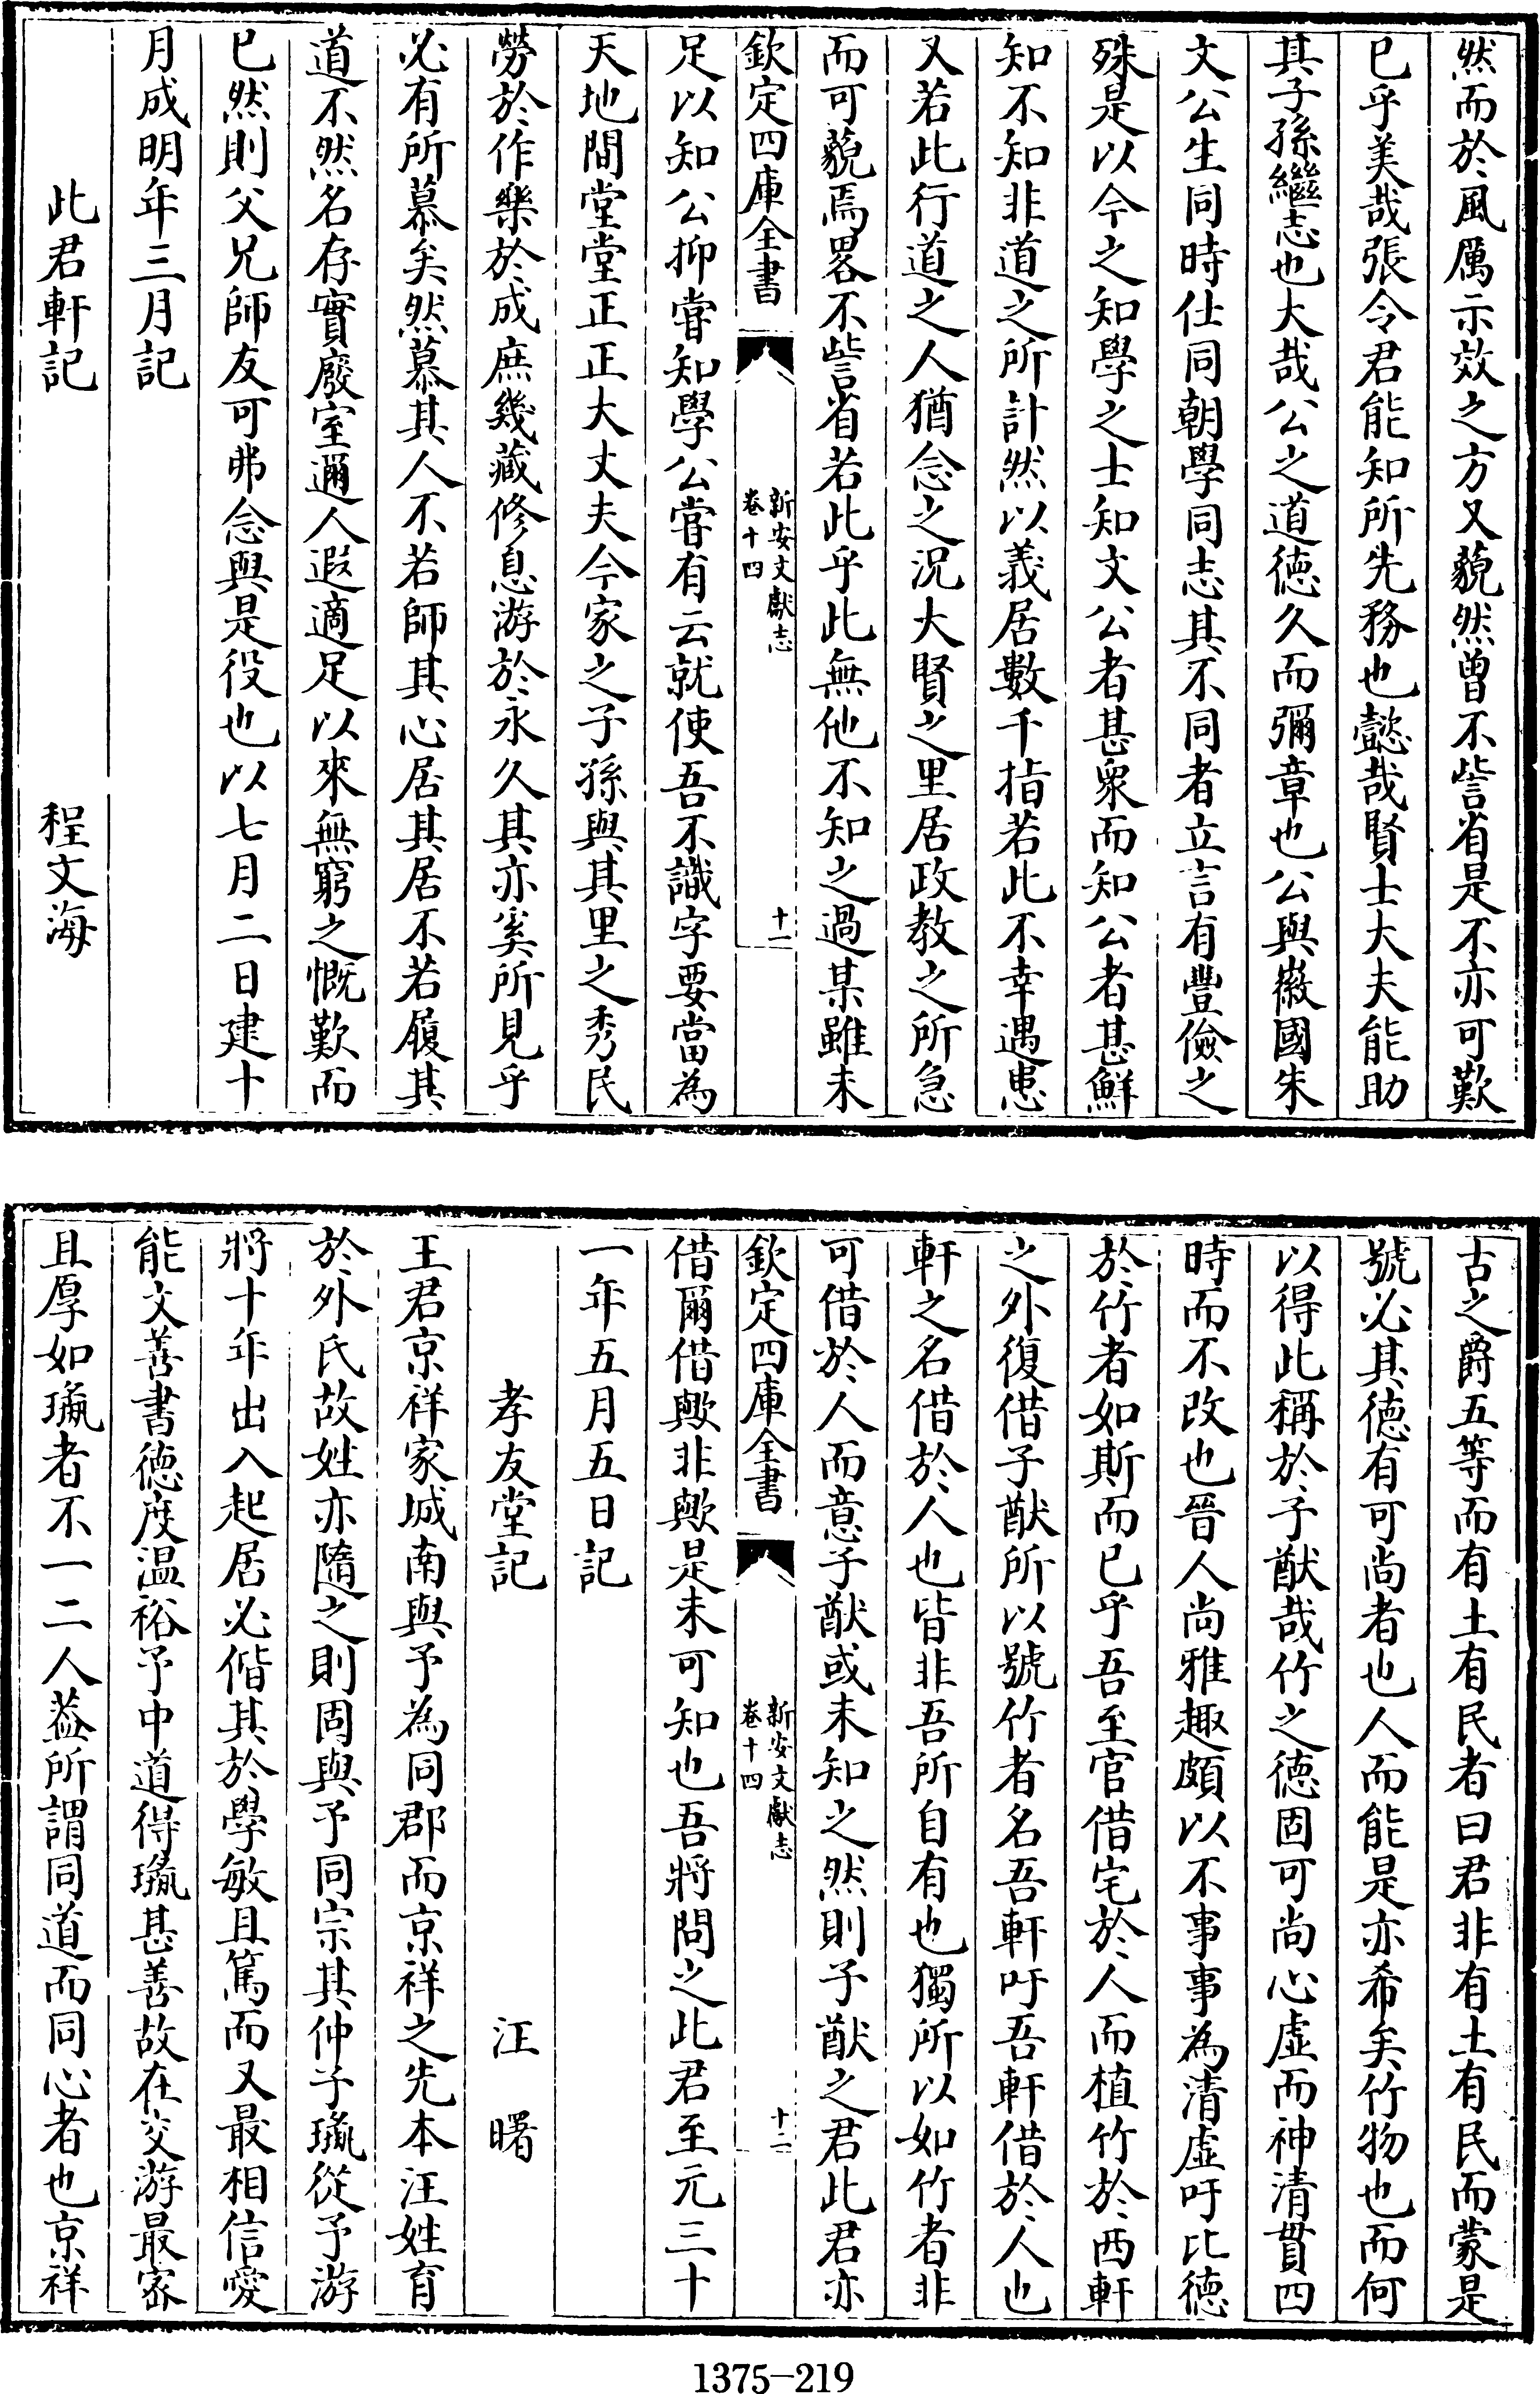 然而於風厲示效之方又藐然曽不訾省是不亦可歎
已乎美哉張令君能知所先務也懿哉賢士大夫能助
其子孫繼志也大哉公之道徳久而彌章也公與徽國朱
文公生同時仕同朝學同志其不同者立言有豐儉之
殊是以今之知學之士知文公者甚衆而知公者甚鮮
知不知非道之所計然以義居數千指若此不幸遇患
又若此行道之人猶念之況大賢之里居政教之所急
而可藐焉畧不訾省若此乎此無他不知之過某雖未
欽定四庫全書
新安文獻志
卷十四
十一
足以知公抑嘗知學公嘗有云就使吾不識字要當為
天地間堂堂正正大丈夫今家之子孫與其里之秀民
勞於作樂於成庶幾藏修息游於永久其亦奚所見乎
必有所慕矣然慕其人不若師其心居其居不若履其
道不然名存實廢室邇人遐適足以來無窮之慨歎而
已然則父兄師友可弗念與是役也以七月二日建十
月成明年三月記
此君軒記　程文海
古之爵五等而有土有民者曰君非有土有民而蒙是
號必其徳有可尚者也人而能是亦希矣竹物也而何
以得此稱於子猷哉竹之徳固可尚心虚而神清貫四
時而不改也晉人尚雅趣頗以不事事為清虚吁比徳
於竹者如斯而已乎吾至官借宅於人而植竹於西軒
之外復借子猷所以號竹者名吾軒吁吾軒借於人也
軒之名借於人也皆非吾所自有也獨所以如竹者非
可借於人而意子猷或未知之然則子猷之君此君亦
欽定四庫全書
新安文獻志
卷十四
十二
借爾借歟非歟是未可知也吾將問之此君至元三十
一年五月五日記
孝友堂記　汪曙
王君京祥家城南與予為同郡而京祥之先本汪姓育
於外氏故姓亦隨之則固與予同宗其仲子璸從予游
將十年出入起居必偕其於學敏且篤而又最相信愛
能文善書徳度温裕予中道得璸甚善故在交游最宻
且厚如璸者不一二人葢所謂同道而同心者也京祥
1375-219